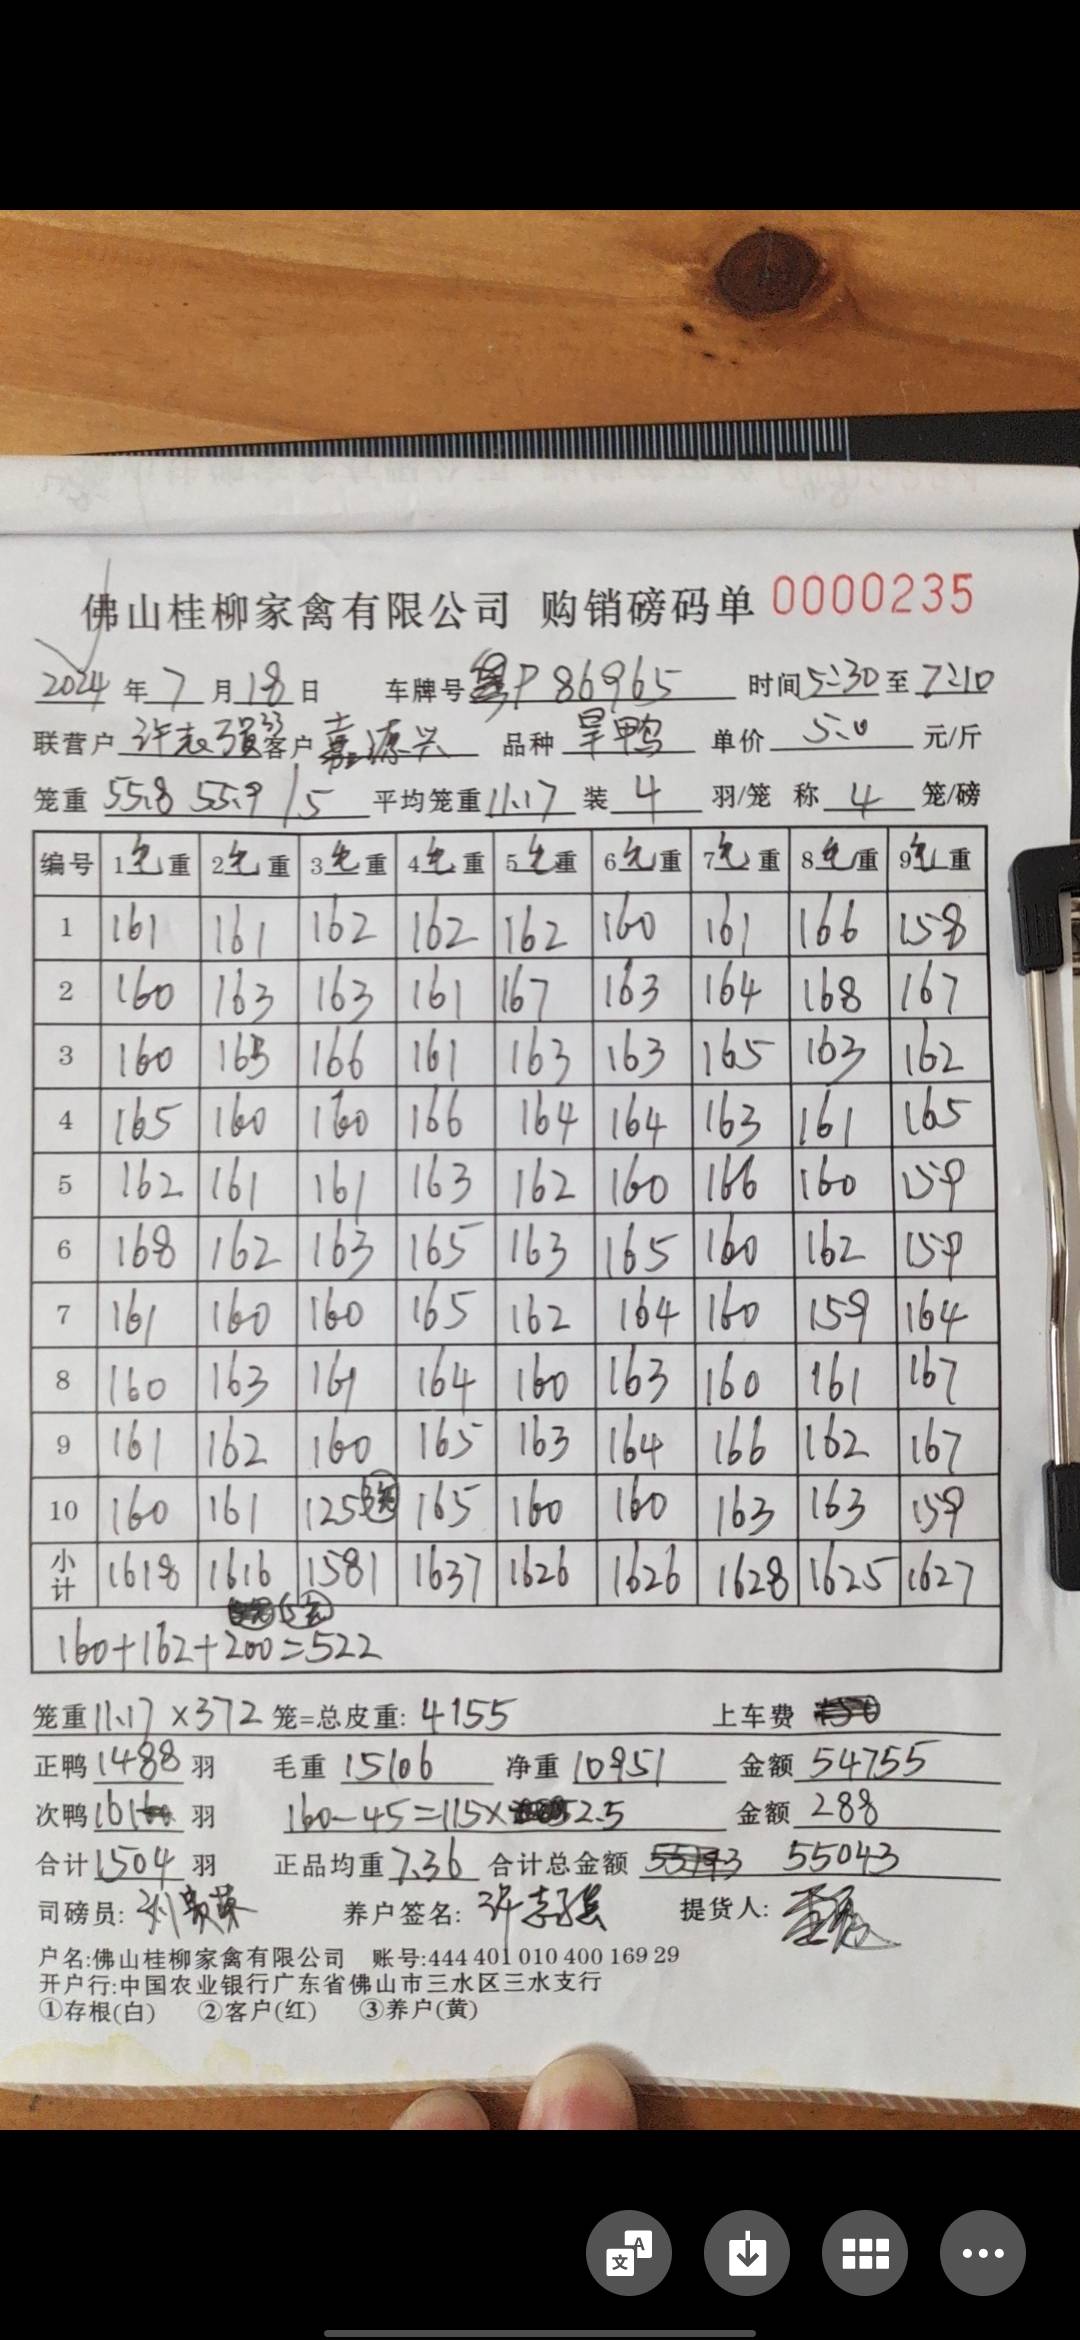 佛山桂柳家禽有限公司 购销磅码单 0000235
2024 年 7 月 18 日 车牌号 粤P86965 时间 5:30 至 7:10
联营户 许志强 客户 嘉源兴 品种 旱鸭 单价 5.0 元/斤
笼重 55.8 55.9 /5 平均笼重 11.17 装 4 羽/笼 称 4 笼/磅
编号 1毛重 2毛重 3毛重 4毛重 5毛重 6毛重 7毛重 8毛重 9毛重
1 161 161 162 162 162 160 161 166 158
2 160 163 163 161 167 163 164 168 167
3 160 163 166 161 163 163 165 163 162
4 165 160 160 166 164 164 163 161 165
5 162 161 161 163 162 160 166 160 159
6 168 162 163 165 163 165 160 162 159
7 161 160 160 165 162 164 160 159 164
8 160 163 161 164 160 163 160 161 167
9 161 162 160 165 163 164 166 162 167
10 160 161 125 165 160 160 163 163 159
小计 1618 1616 1581 1637 1626 1626 1628 1625 1627
160+162+200=522
笼重 11.17 ×372 笼=总皮重: 4155 上车费
正鸭 1488 羽 毛重 15106 净重 10951 金额 54755
次鸭 16 羽 160-45=115× 2.5 金额 288
合计 1504 羽 正品均重 7.36 合计总金额 55043
司磅员: 养户签名: 许志强 提货人:
户名:佛山桂柳家禽有限公司 账号:444 401 010 400 169 29
开户行:中国农业银行广东省佛山市三水区三水支行
①存根(白) ②客户(红) ③养户(黄)